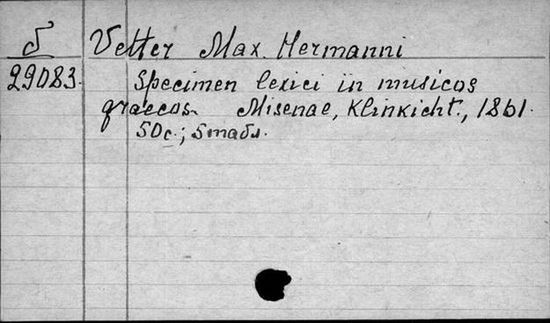 S Vetter Max Hermanni
29083. Specimen lexici in musicos
graecos. Misenae, Klinkicht., 1861.
50c.;